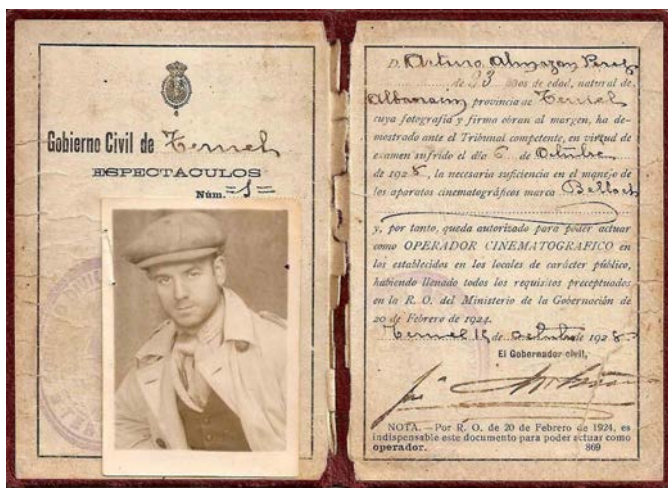 Gobierno Civil de Teruel
ESPECTACULOS
Núm. =1=
D. Arturo Almazan Perez
de 23 años de edad, natural de
Albarracin provincia de Teruel
cuya fotografía y firma obran al margen, ha de-
mostrado ante el Tribunal competente, en virtud de
examen sufrido el día 6 de Octubre
de 1928, la necesaria suficiencia en el manejo de
los aparatos cinematográficos marca Balloch
y, por tanto, queda autorizado para poder actuar
como OPERADOR CINEMATOGRAFICO en
los establecidos en los locales de carácter público,
habiendo llenado todos los requisitos preceptuados
en la R. O. del Ministerio de la Gobernación de
20 de Febrero de 1924.
Teruel 15 de octubre de 1928
El Gobernador civil,
NOTA.—Por R. O. de 20 de Febrero de 1924, es
indispensable este documento para poder actuar como
operador. 869